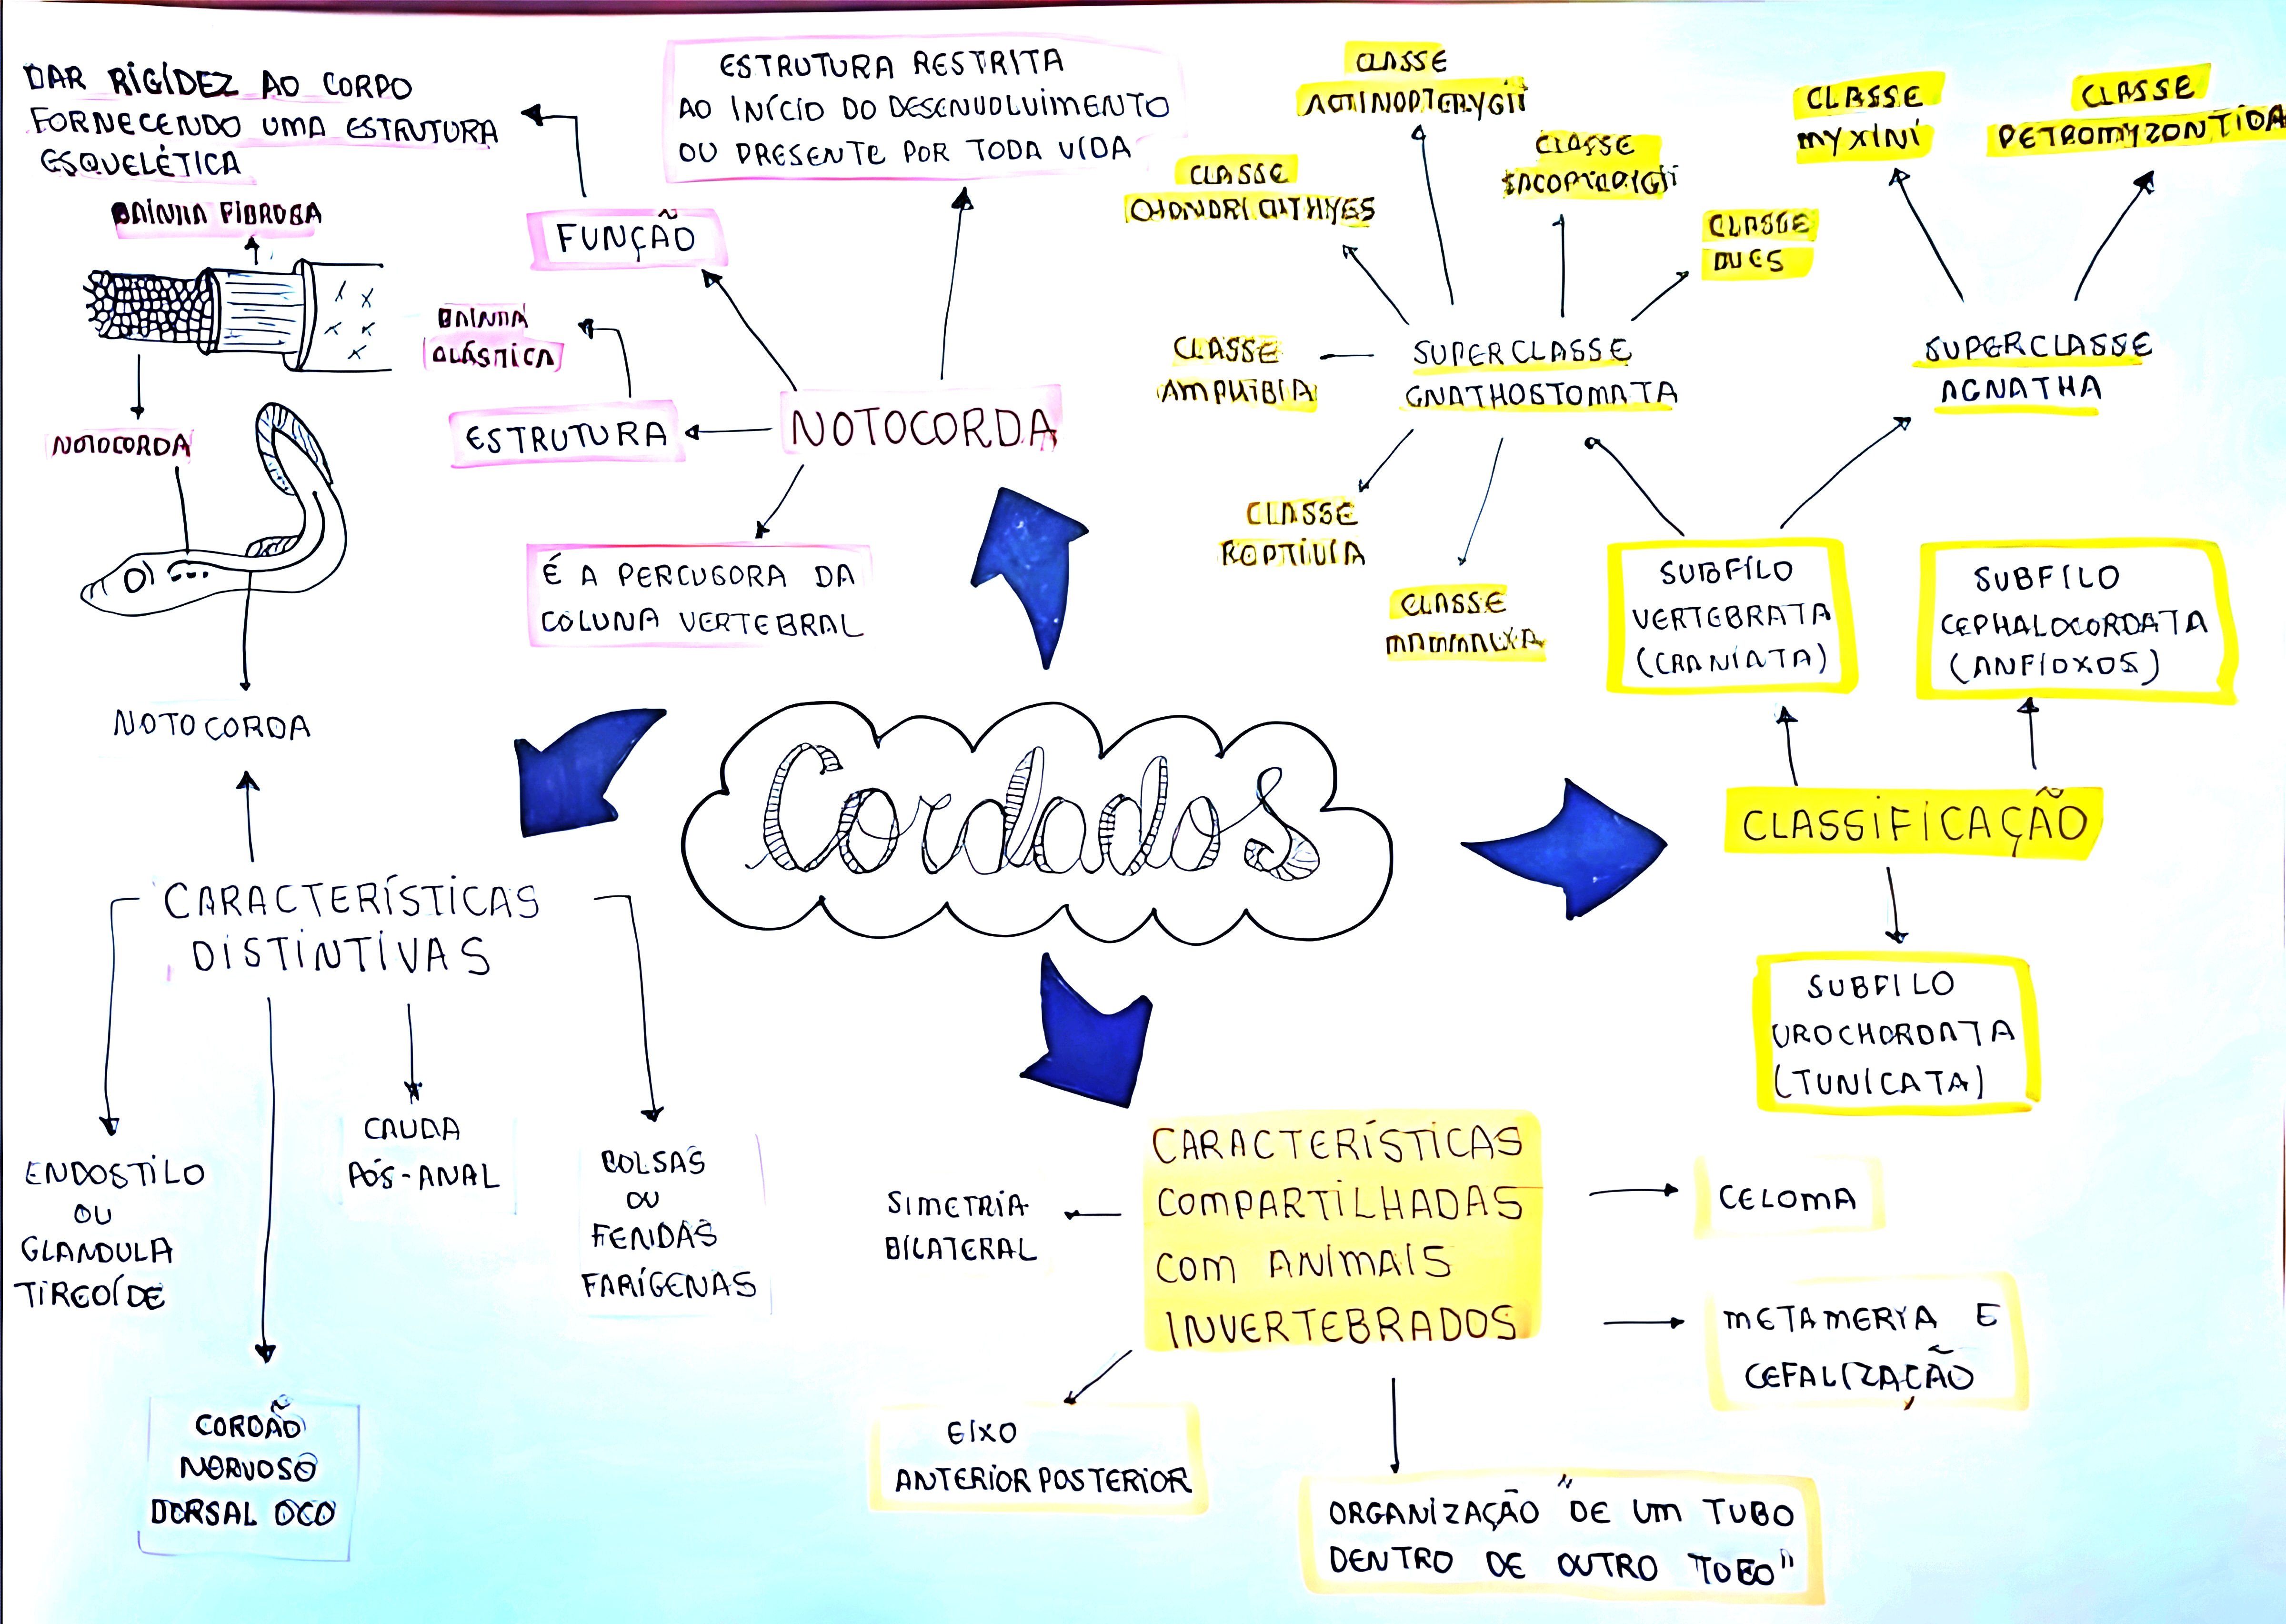 DAR RIGÍDEZ AO CORPO
FORNECENDO UMA ESTRUTURA
ESQUELÉTICA
BAINHA FIBROSA
NOTOCORDA
NOTOCORDA
FUNÇÃO
ESTRUTURA RESTRITA
AO INÍCIO DO DESENVOLVIMENTO
OU PRESENTE POR TODA VIDA
BAINHA
ELÁSTICA
ESTRUTURA
NOTOCORDA
É A PERCUSORA DA
COLUNA VERTEBRAL
CLASSE
ACTINOPTERYGII
CLASSE
CHONDRICHTHYES
CLASSE
CLASSE
AVES
CLASSE
AMPHIBIA
SUPERCLASSE
GNATHOSTOMATA
CLASSE
REPTILIA
CLASSE
MAMMALIA
CLASSE
MYXINI
CLASSE
PETROMYZONTIDA
SUPERCLASSE
AGNATHA
SUBFÍLO
VERTEBRATA
(CRANIATA)
SUBFILO
CEPHALOCORDATA
(ANFIOXOS)
Cordados
CLASSIFICAÇÃO
SUBFILO
UROCHORDATA
(TUNICATA)
CARACTERÍSTICAS
DISTINTIVAS
ENDOSTILO
OU
GLANDULA
TIREOÍDE
CAUDA
PÓS-ANAL
BOLSAS
OU
FENDAS
FARÍGENAS
CORDÃO
NERVOSO
DORSAL OCO
CARACTERÍSTICAS
COMPARTILHADAS
COM ANIMAIS
INVERTEBRADOS
SIMETRIA
BILATERAL
CELOMA
METAMERIA E
CEFALIZAÇÃO
EIXO
ANTERIOR POSTERIOR
ORGANIZAÇÃO "DE UM TUBO
DENTRO DE OUTRO TUBO"